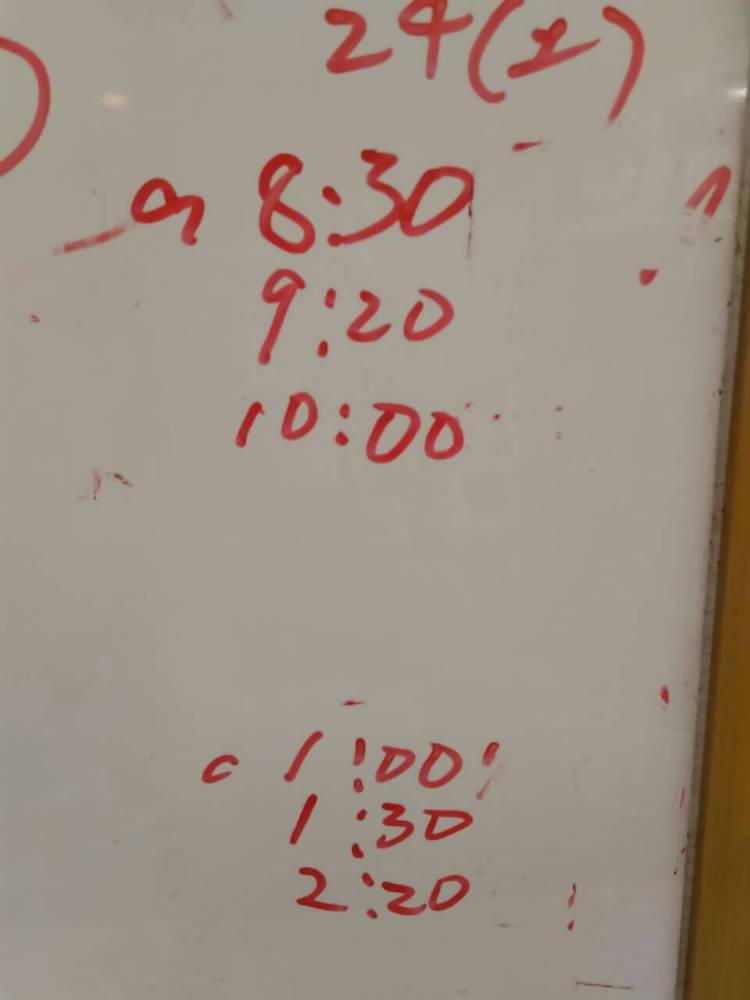 24( )
8:30
9:20
10:00
1:00
1:30
2:20